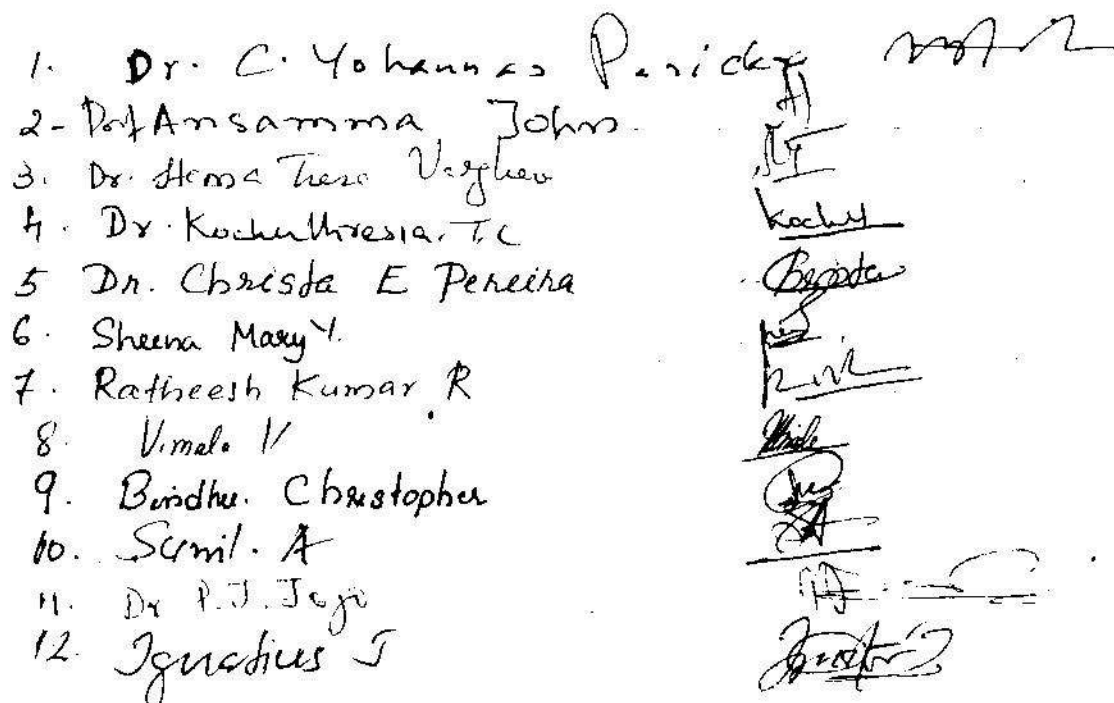 1. Dr. C. Yohannas Panicker
2- Prof Ansamma John.
3. Dr. Hema Trese Varghese
4. Dr. Kochuthresia. T.C Kochu
5 Dr. Christa E Pereira Christa
6. Sheena Mary Y.
7. Ratheesh Kumar R
8. Vimala V
9. Bindhu. Christopher
10. Sunil. A
11. Dr P.J. Jojo
12. Ignatius J